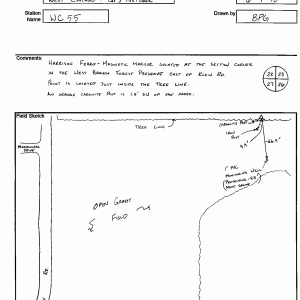 Station Name WC 55
Drawn by BPG
Comments:
HARRISON FERRO-MAGNETIC MARKER LOCATED AT THE SECTION CORNER
IN THE WEST BRANCH FOREST PRESERVE EAST OF KLEIN RD.
POINT IS LOCATED JUST INSIDE THE TREE LINE.
AN ORANGE CARSONITE POST IS 1.5' SW OF THE MARK.
22 23
27 26
Field Sketch
TREE LINE
CARSONITE POST
IRON
POST
9.9'
66.9'
MONITORING WELL
OPEN GRASS
FIELD
DRIVE